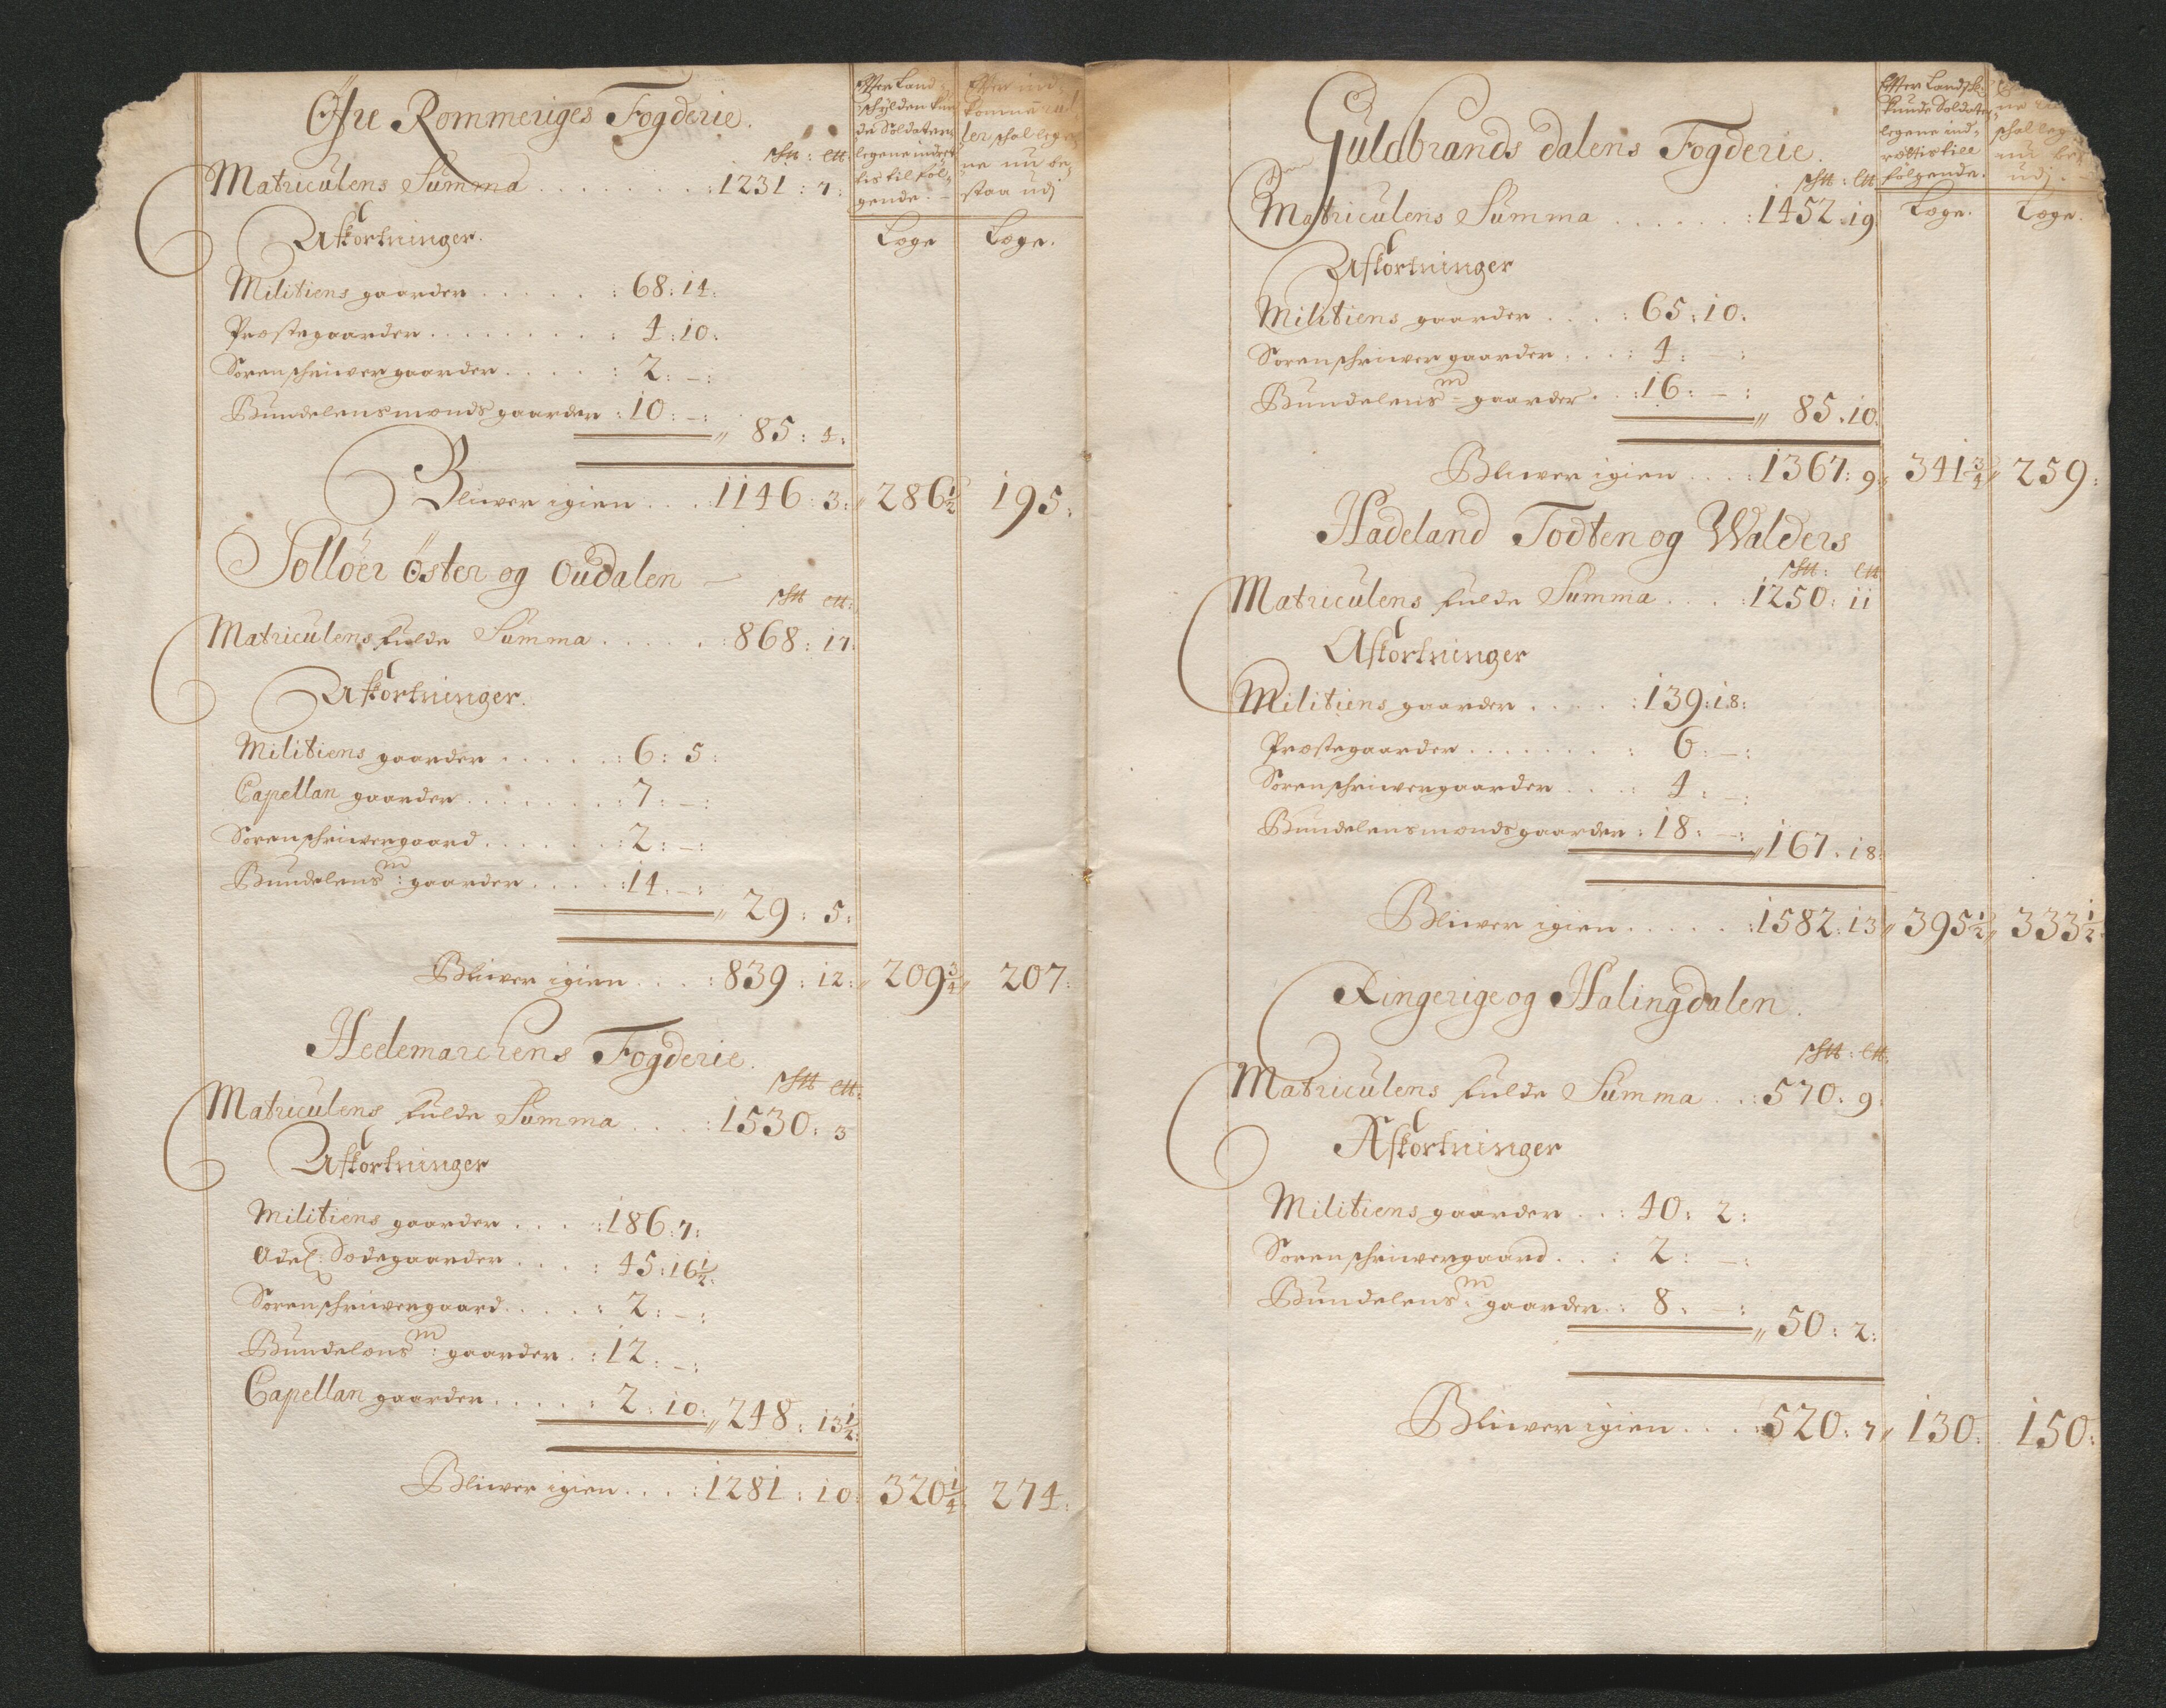 Öfre Rommeriges Fogderie.
Efter Land-
schylden kun
de Soldaten
legene indret
tis til föl-
gende.
Efter ind-
komne rul
ler schal lege
ne nu be-
staa udj
S℔: L℔:
Matriculens Summa . . . . . . . . : 1231 : 7 :
Læge Læge.
Afkortninger.
Militiens gaarder . . . . . : 68 : 14 :
Præstegaarder . . . . . . . : 4 : 10 :
Sorenschriwer gaarder . . . . : 2 : - :
Bundelensmends gaarder : 10 : - :
" 85 : 4 :
Bliwer igien . . . : 1146 : 3 : " 286½ 195 :
Sollöer Öster og Oudalen
S℔ L℔:
Matriculens fulde Summa . . . . . : 868 : 17
Afkortninger.
Militiens gaarder . . . . . : 6 : 5 :
Capellan gaarder . . . . . . . : 7 : - :
Sorenschriwergaard . . . . . . : 2 : - :
Bundelens m : gaarder . . . . : 14 : - :
" 29 : 5 :
Bliwer igien . . . . : 839 : 12 : " 209¾ " 207 :
Hedemarchens Fogderie.
S℔ L℔:
Matriculens fulde Summa . . . . : 1530 : 3
Afkortninger
Militiens gaarder . . . . : 186 : 7 :
Adel: Sædegaarder . . . . : 45 : 16½ :
Sorenschriwergaard . . . . : 2 : - :
Bundelens m : gaarder . : 12 : - :
Capellan gaarder . . . . . : 2 : 10 : " 248 : 13½ :
Bliwer igien . . . . : 1281 : 10 : 320¼ : 274 :
Guldbrands dalens Fogderie.
Efter Landsk:
kunde Soldater
legene ind-
rettis till
fölgende.
schal leg
nu be
udj.
S℔: L℔
Matriculens Summa . . . . . . : 1452 : 19 Læge. Læge.
Afkortninger
Militiens gaarder . . . . : 65 : 10 :
Sorenschriwer gaarder . . . : 4 : :
Bundelens m gaarder . . : 16 : - :
" 85 : 10 :
Bliwer igien . . . . : 1367 : 9 " 341¾ " 259 :
Hadeland Todten og Walders
S℔: L℔
Matriculens fulde Summa . . . : 1250 : 11
Afkortninger
Militiens gaarder . . . . . : 139 : 18 :
Præstegaarder . . . . . . . : 6 : - :
Sorenschriwergaarder . . . : 4 : - :
Bundelensmendsgaarder : 18 : - :
" 167 : 18 :
Bliwer igien . . . . . : 1582 : 13 " 395½ " 333½
Ringerige og Halingdalen.
S℔: L℔:
Matriculens fulde Summa . . : 570 : 9 :
Afkortninger
Militiens gaarder . . : 40 : 2 :
Sorenschriwergaard . . : 2 : - :
Bundelens m : gaarder . : 8 : - :
" 50 : 2 :
Bliwer igien . . . : 520 : 7 " 130 : 150 :